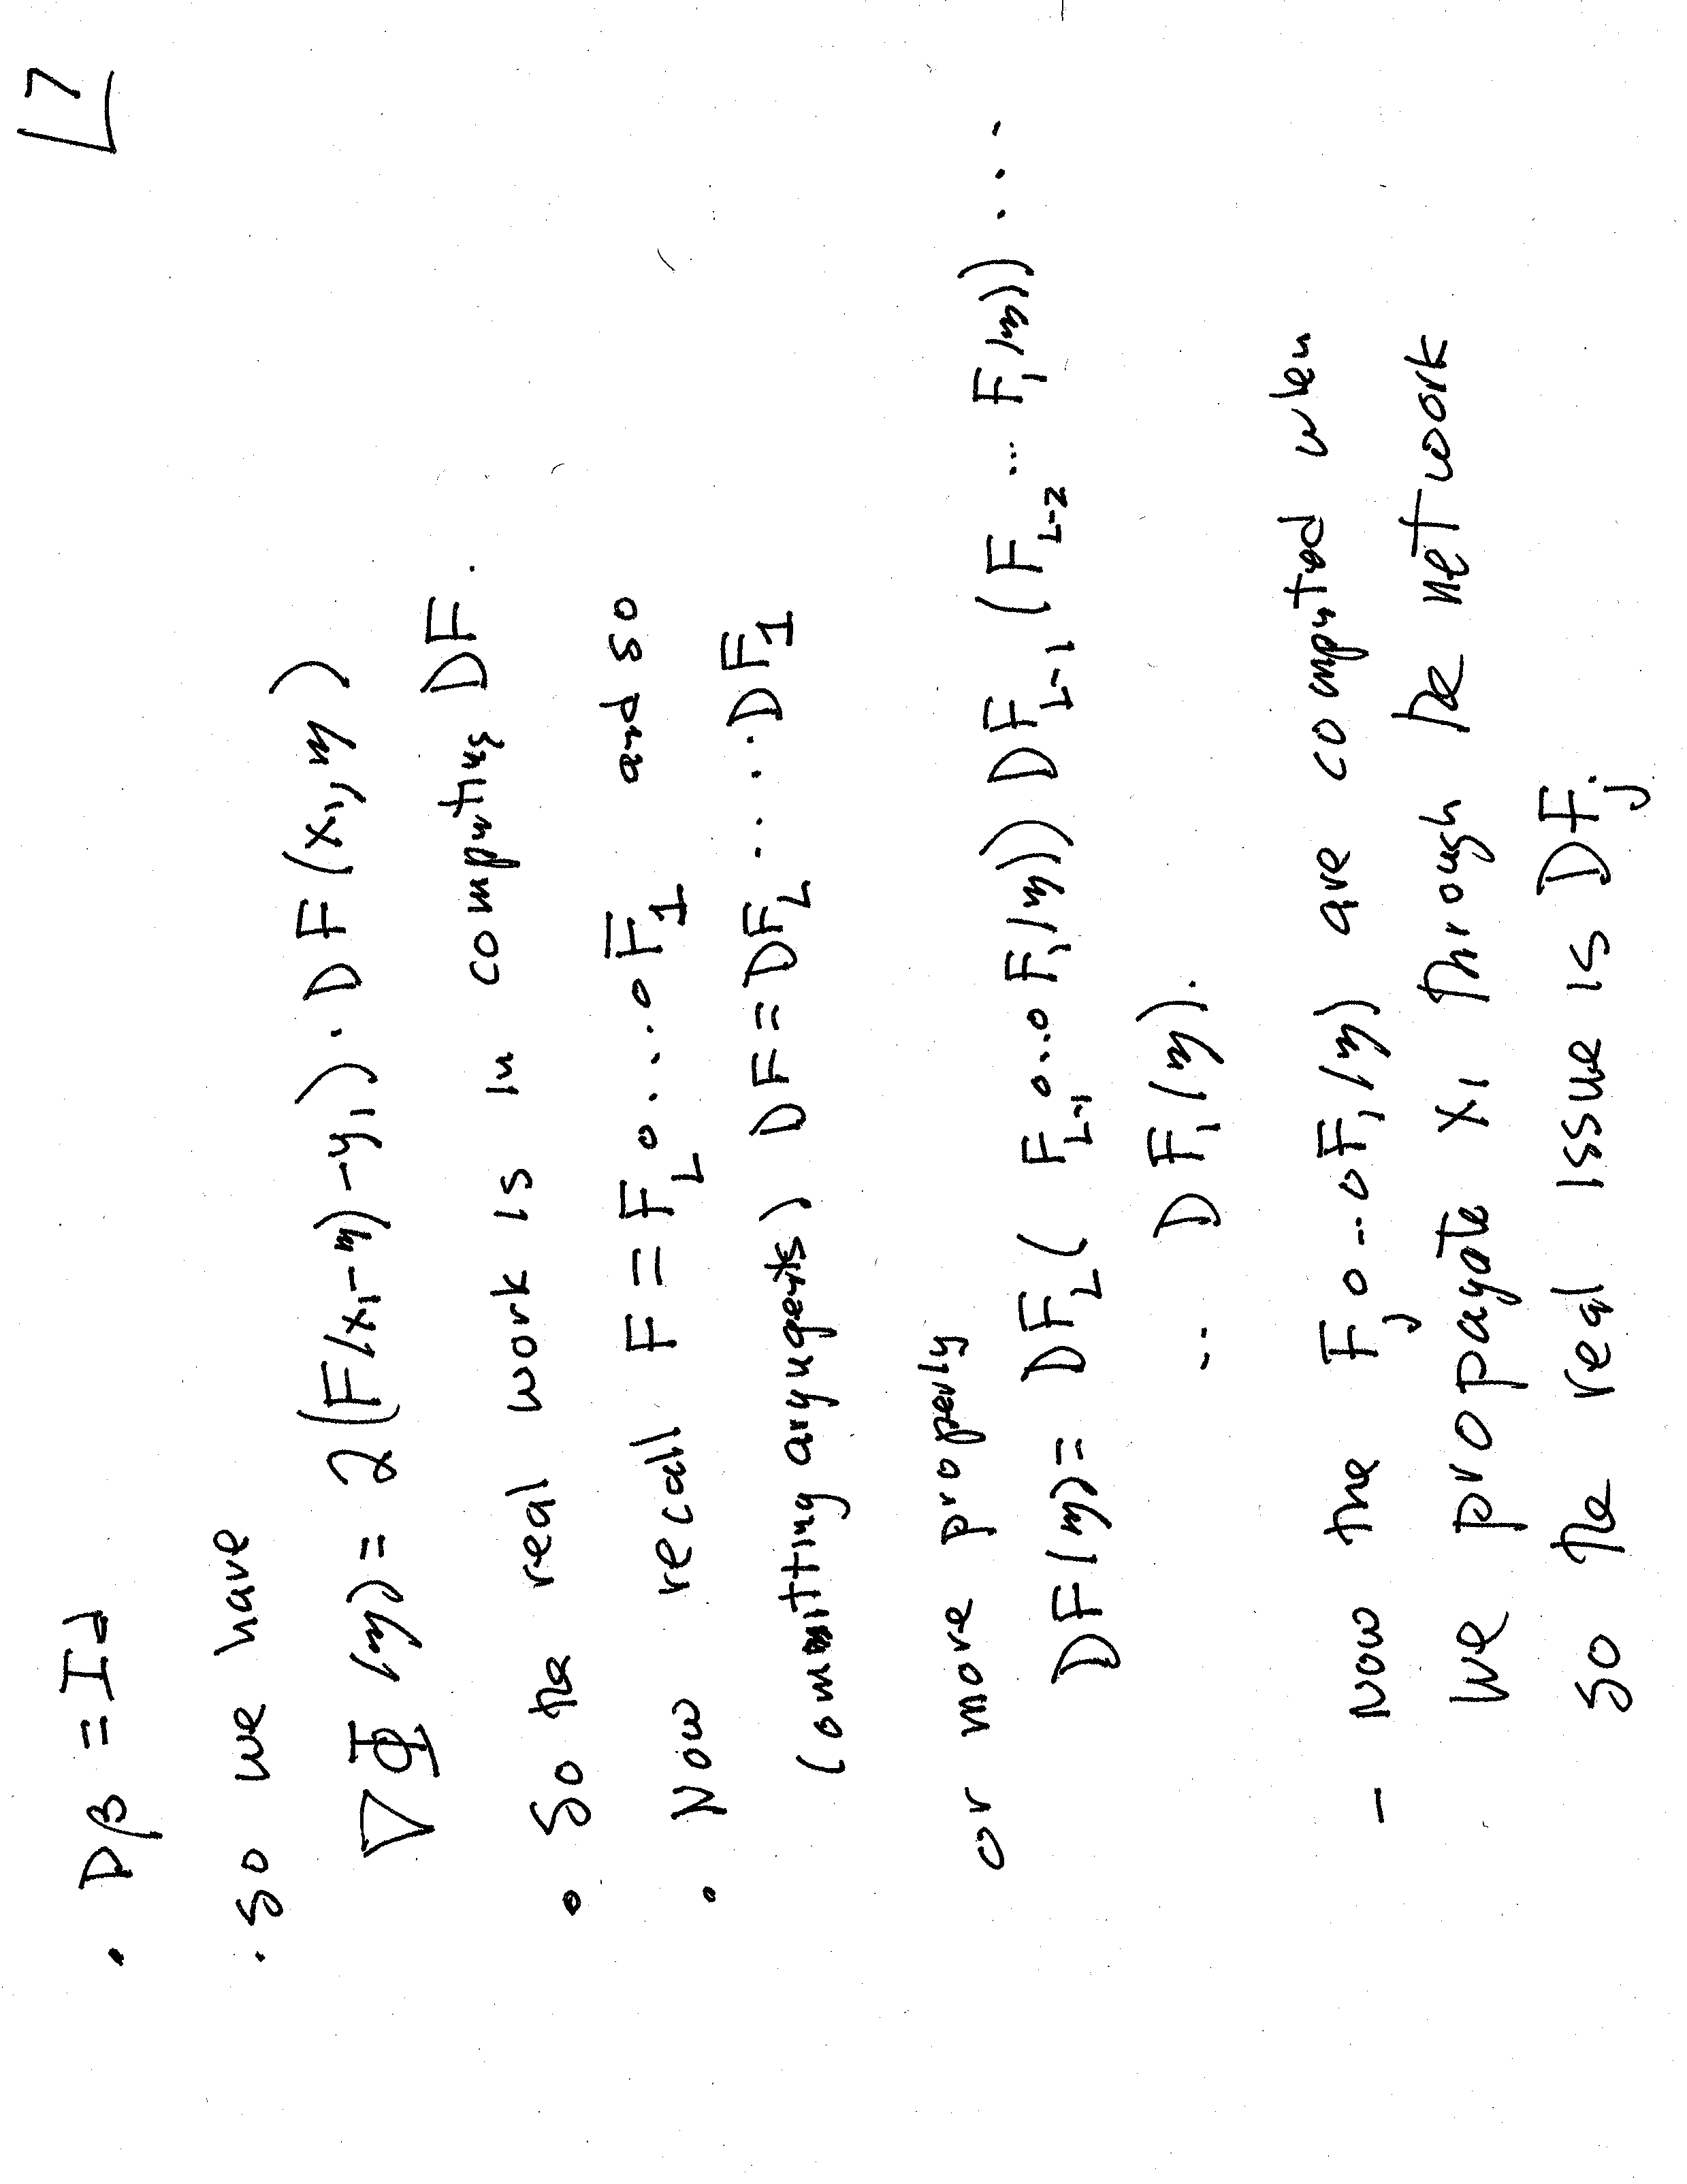 7
• Dβ = Id
• so we have
∇Φ(y) = 2(F(x₁-y)-y₁)·DF(x₁,y)
• So the real work is in computing DF.
• Now recall F = F_L∘...∘F_1 and so
(ommitting arguments) DF = DF_L.....DF_1
or more properly
DF(y) = DF_L(F_{L-1}∘...∘F_1(y)) DF_{L-1}(F_{L-2}...F_1(y))...
... DF_1(y).
- Now the F_j∘...∘F_1(y) are computed when
we propagate x₁ through the network
so the real issue is DF_j.